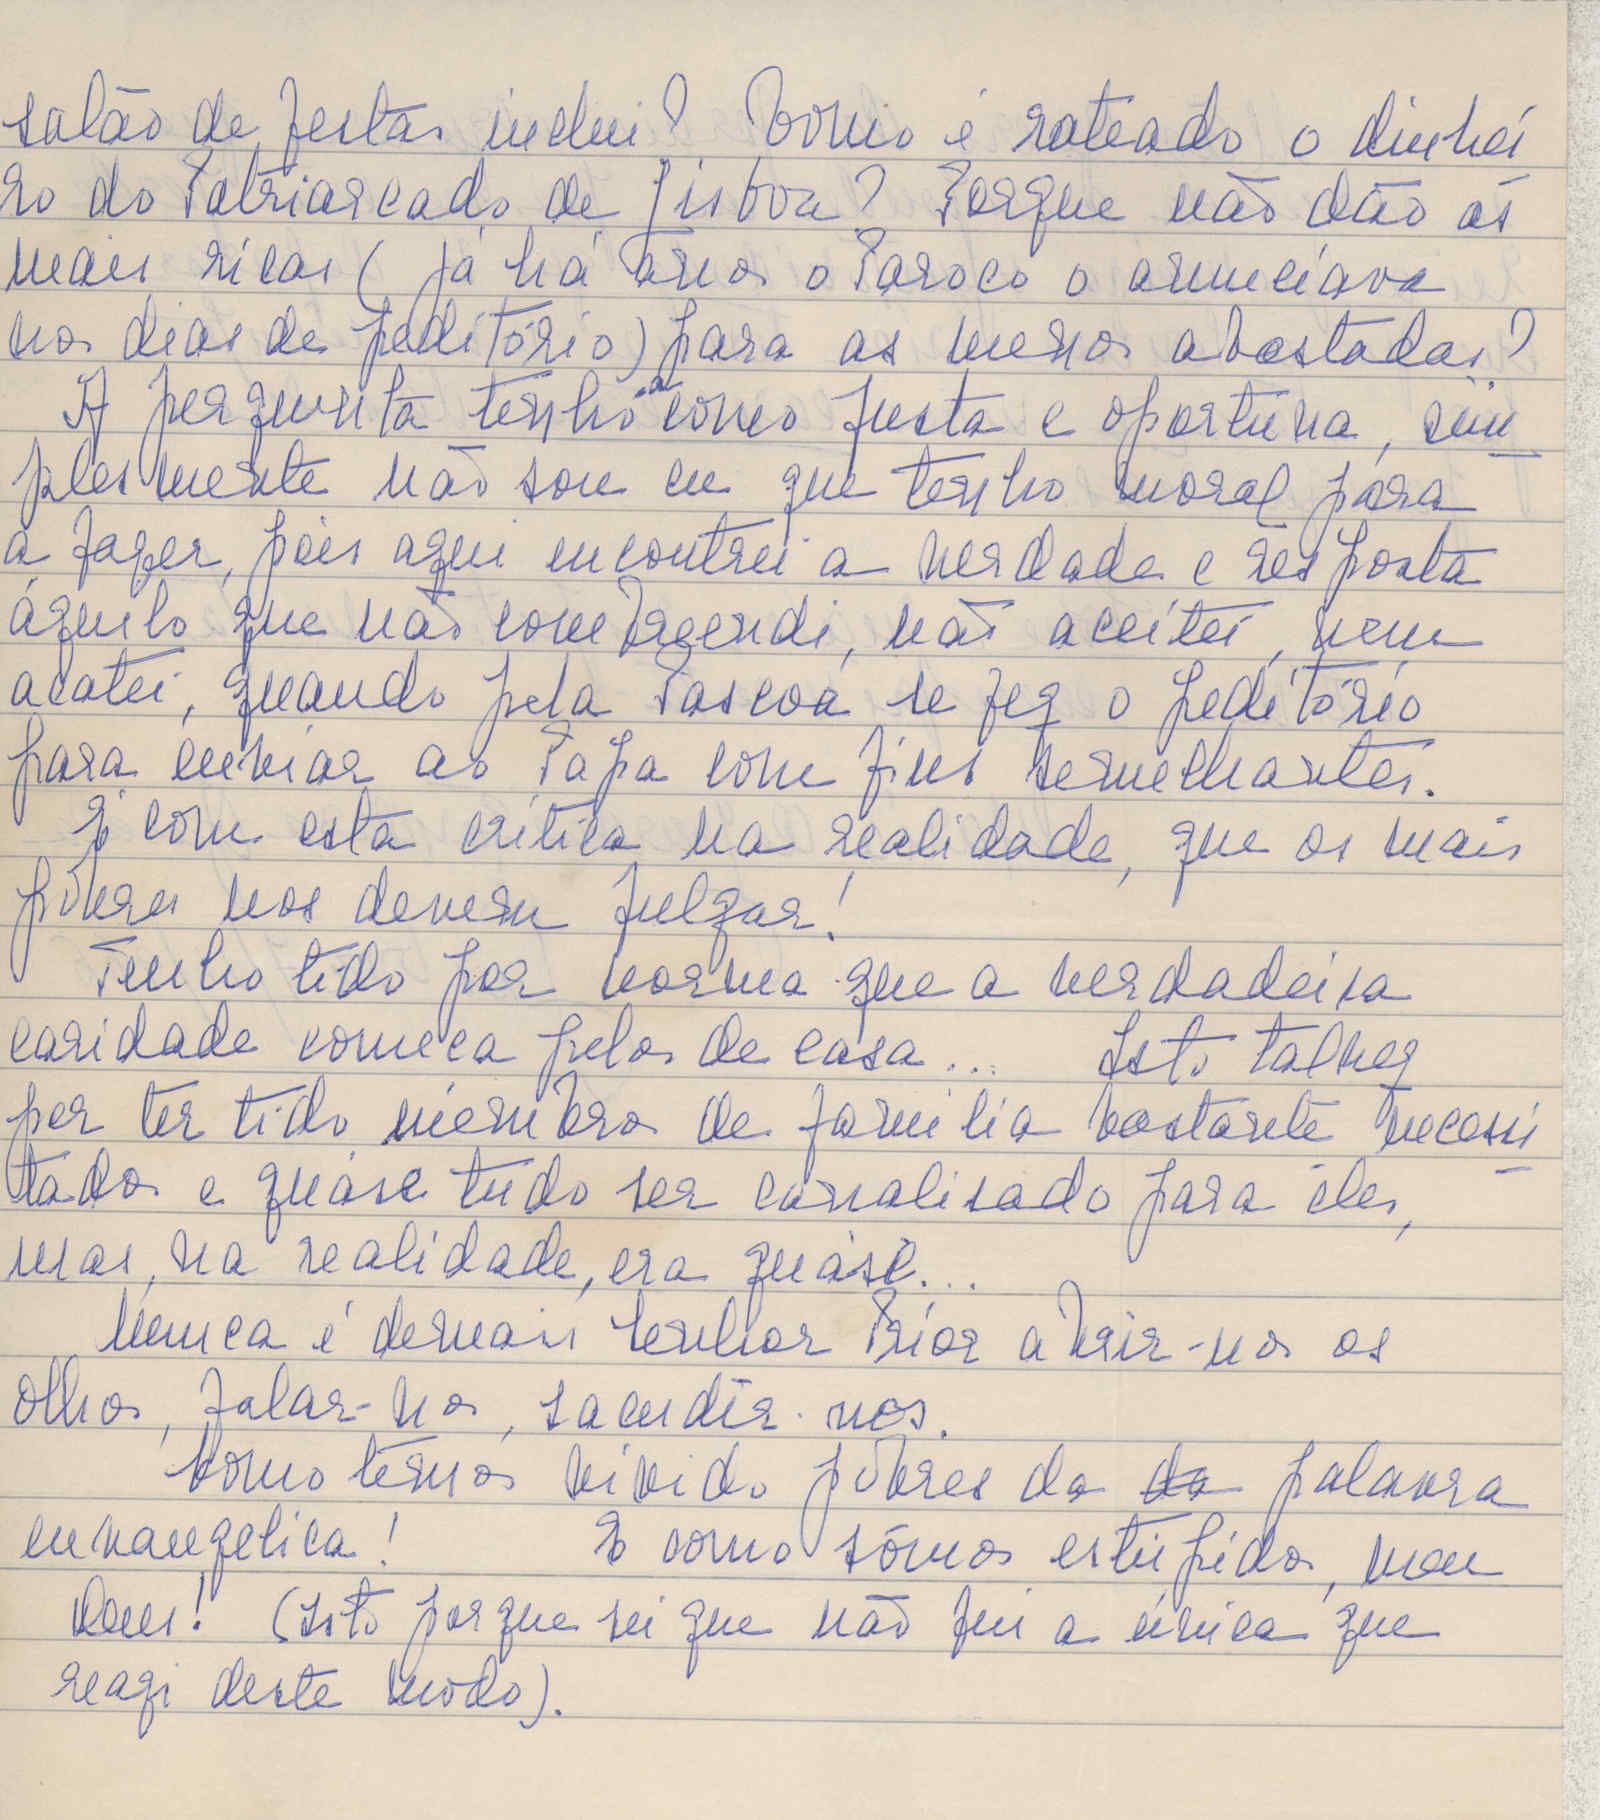 salão de festas inclui? Como é rateado o dinhei
ro do Patriarcado de Lisboa? Porque não dão as
mais ricas (já há anos o Paroco o anunciava
nos dias de peditório) para as menos abastadas?
A pergunta tenho-a como justa e oportuna, sim
plesmente não sou eu que tenho moral para
a fazer, pois aqui encontrei a verdade e resposta
áquilo que não compreendi, não aceitei, nem
acatei, quando pela Pascoa se fez o peditório
para enviar ao Papa com fins semelhantes.
É com esta critica na realidade, que os mais
póbres nos devem julgar!
Tenho tido por norma que a verdadeira
caridade começa pelos de casa... Isto talvez
por ter tido membros de familia bastante necessi
tados e quáse tudo ser canalisado para eles,
mas, na realidade, era quáse...
Nunca é demais senhor Prior abrir-nos os
olhos, falar-nos, sacudir-nos.
Como temos vivido póbres da da palavra
envangelica! E como sômos estupidos, meu
Deus! (Isto porque sei que não fui a única que
reagi deste modo).